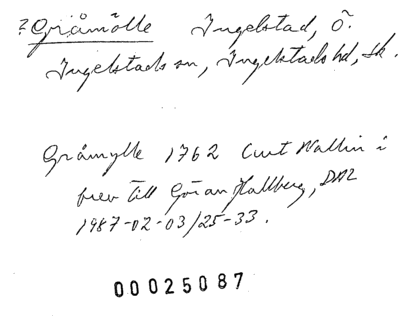 ? Gråmölle Ingelstad, Ö.
Ingelstads sn, Ingelstads hd, Sk.
Gråmylle 1762 Curt Wallin i
brev till Göran Hallberg, DAL
1987-02-03/25-33.
00025087